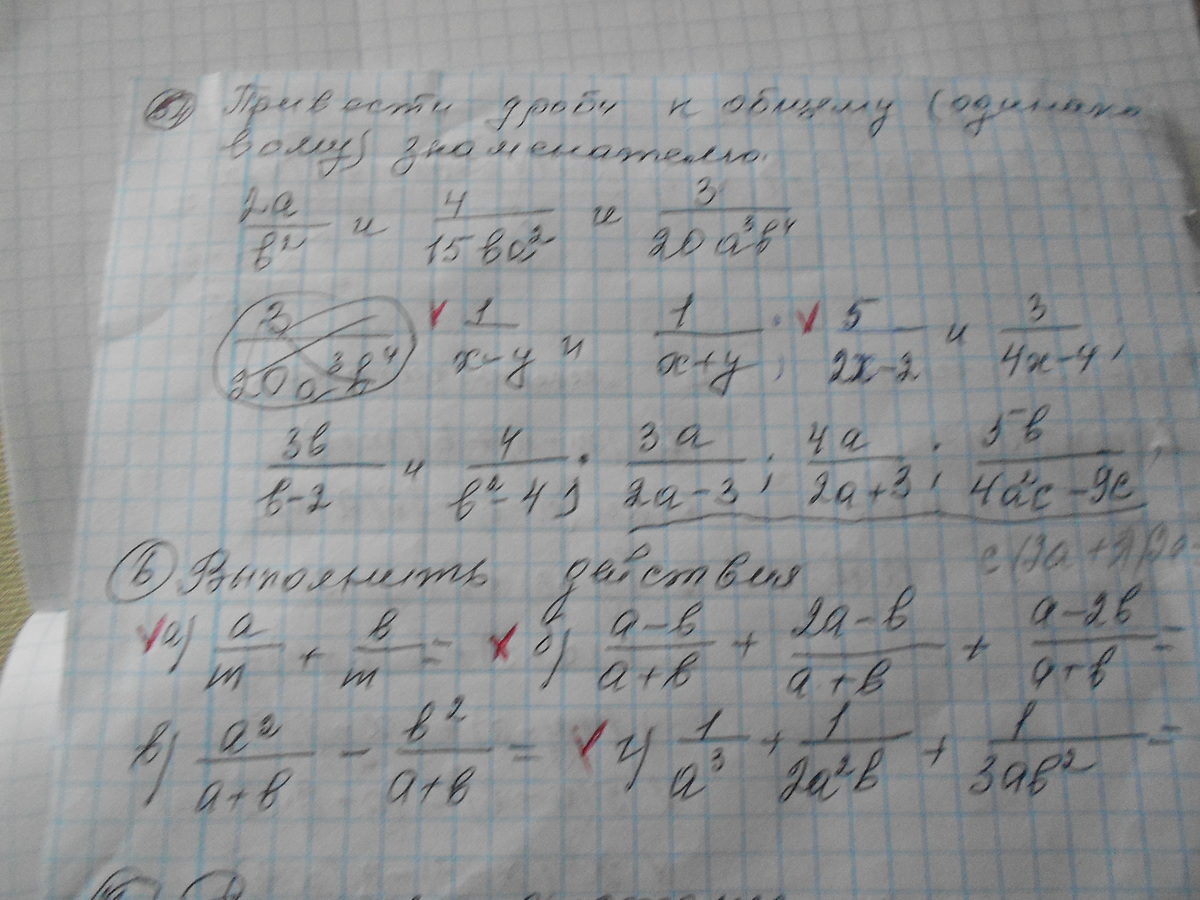 5) Привести дроби к общему (одинако
вому) знаменателю.
2a/b² и 4/15ba² и 3/20a³b⁴
1/x-y и 1/x+y; 5/2x-2 и 3/4x-4;
3b/b-2 и 4/b²-4; 3a/2a-3; 4a/2a+3; 5b/4a²c-9c;
6) Выполнить действия
а) a/m + b/m = б) a-b/a+b + 2a-b/a+b + a-2b/a+b =
в) a²/a+b - b²/a+b = г) 1/a³ + 1/2a²b + 1/3ab² =